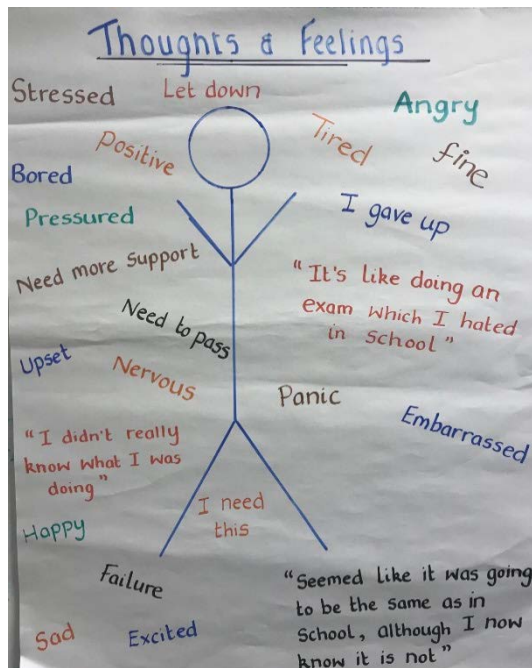 Thoughts & Feelings
Stressed
Let down
Angry
Positive
Tired
fine
Bored
Pressured
I gave up
Need more support
"It's like doing an
exam which I hated
in school"
Need to pass
Upset
Nervous
Panic
Embarrassed
"I didn't really
know what I was
doing"
I need
this
Happy
Failure
"Seemed like it was going
to be the same as in
School, although I now
know it is not"
Sad
Excited